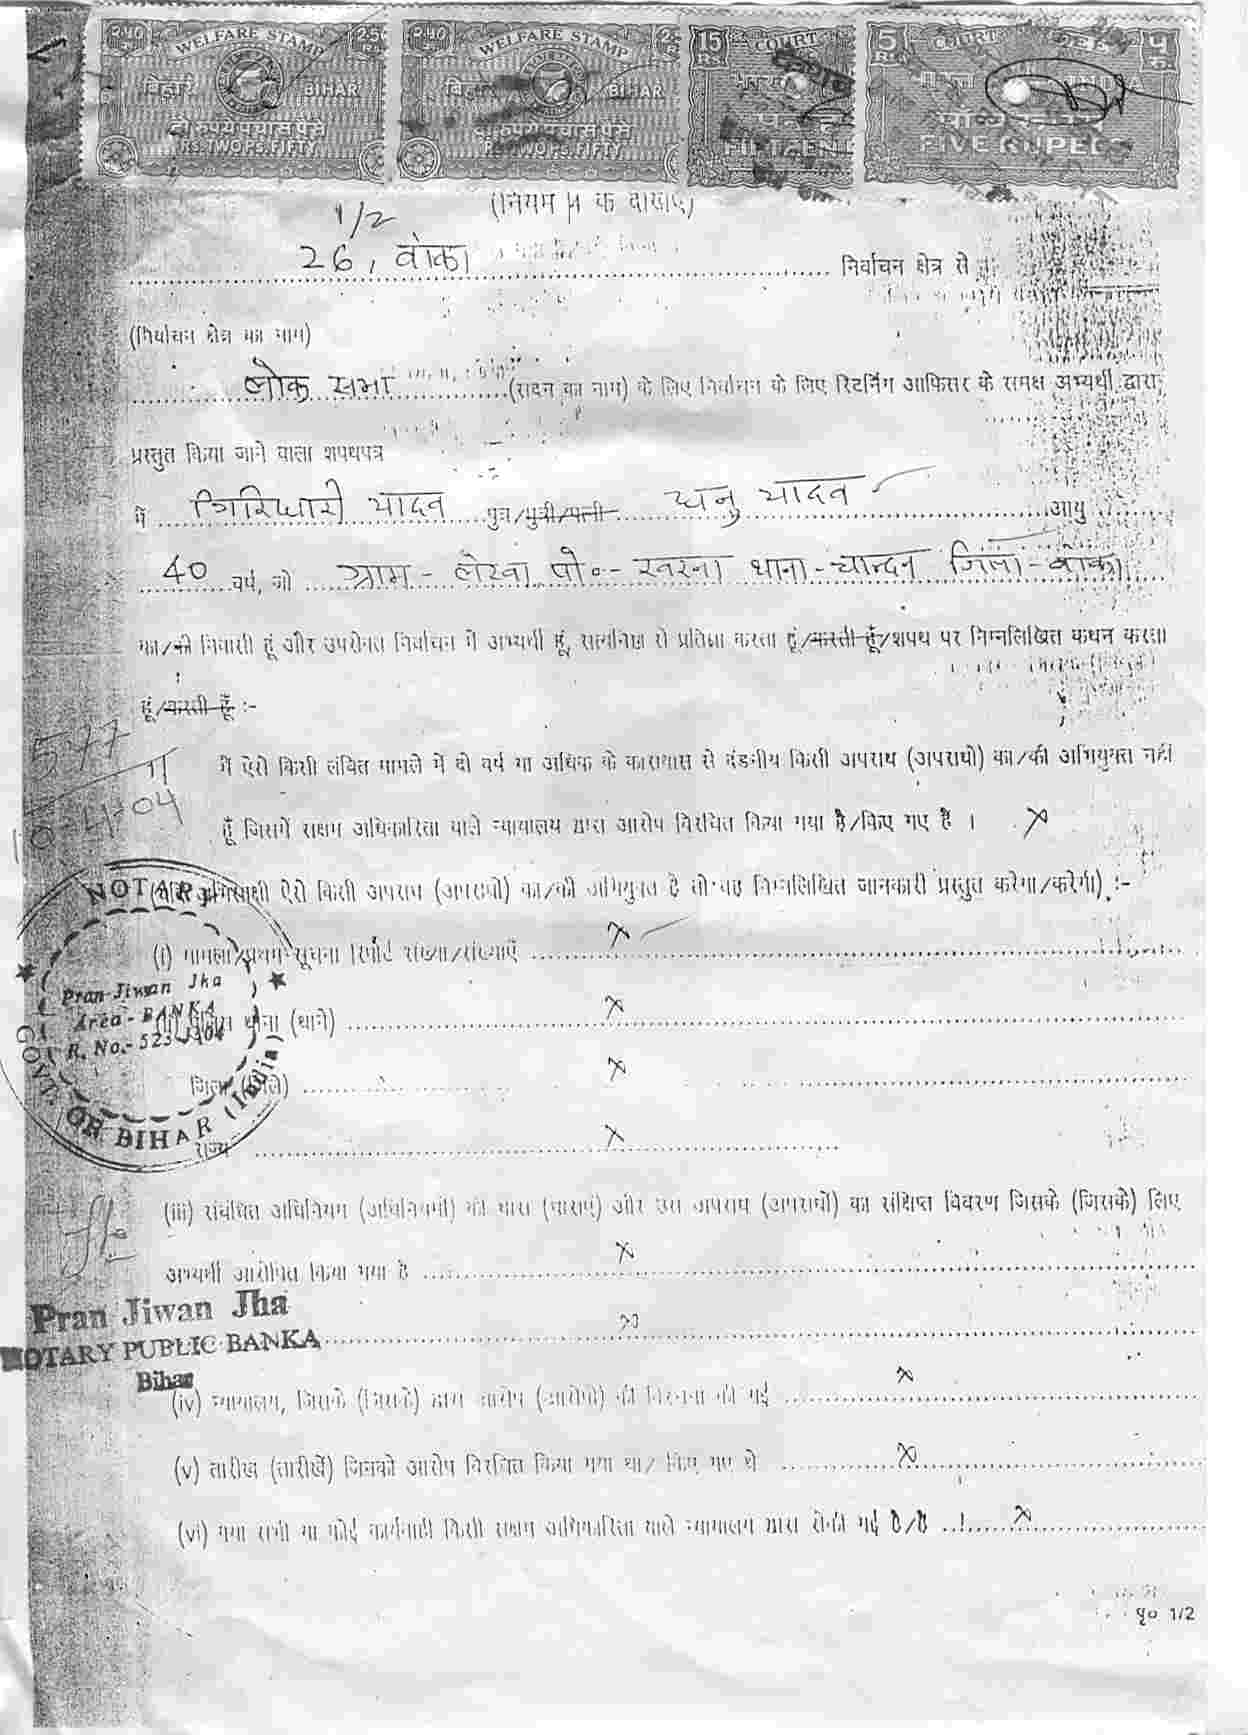 2.50 WELFARE STAMP 2.50
बिहार BIHAR
दो रुपये पचास पैसे
RS. TWO PS. FIFTY
2.50 WELFARE STAMP
बिहार BIHAR
दो रुपये पचास पैसे
RS. TWO PS. FIFTY
15 Rs. COURT
FIFTEEN
5 Rs. COURT FEE ५ रु.
भारत INDIA
पाँच रुपये
FIVE RUPEES
1/2
26, बांका निर्वाचन क्षेत्र से
(निर्वाचन क्षेत्र का नाम)
लोक सभा (सदन का नाम) के लिए निर्वाचन के लिए रिटर्निंग आफिसर के समक्ष अभ्यर्थी द्वारा
प्रस्तुत किया जाने वाला शपथपत्र
मैं गिरिधारी यादव पुत्र/पुत्री/पत्नी धनु यादव आयु
40 वर्ष, जो ग्राम - लेरवा पो०- थाना - चान्दन जिला - बांका
का/की निवासी हूं और उपरोक्त निर्वाचन में अभ्यर्थी हूं, सत्यनिष्ठा से प्रतिज्ञा करता हूं/करती हूँ/शपथ पर निम्नलिखित कथन करता
हूं/करती हूँ :-
577
10-4-04
मैं ऐसे किसी लंबित मामले में दो वर्ष या अधिक के कारावास से दंडनीय किसी अपराध (अपराधों) का/की अभियुक्त नहीं
हूँ जिसमें सक्षम अधिकारिता वाले न्यायालय द्वारा आरोप विरचित किया गया है/किए गए हैं । X
(यदि अभिसाक्षी ऐसे किसी अपराध (अपराधों) का/की अभियुक्त है तो वह निम्नलिखित जानकारी प्रस्तुत करेगा/करेगी) :-
(i) मामला/प्रथम सूचना रिपोर्ट संख्या/संख्याएँ X
थाना (थाने) X
जिला X
राज्य X
NOTARY
Pran Jiwan Jha
Area - BANKA
R. No.-
GOVT. OF BIHAR (India)
(iii) संबंधित अधिनियम (अधिनियमों) की धारा (धाराएं) और उस अपराध (अपराधों) का संक्षिप्त विवरण जिसके (जिसके) लिए
अभ्यर्थी आरोपित किया गया है X
X
Pran Jiwan Jha
NOTARY PUBLIC BANKA
Bihar
(iv) न्यायालय, जिसके (जिसके) द्वारा आरोप (आरोपों) की विरचना की गई X
(v) तारीख (तारीखें) जिनको आरोप विरचित किया गया था/ किए गए थे X
(vi) क्या सभी या कोई कार्यवाही किसी सक्षम अधिकारिता वाले न्यायालय द्वारा रोकी गई है/हैं X
पृ० 1/2